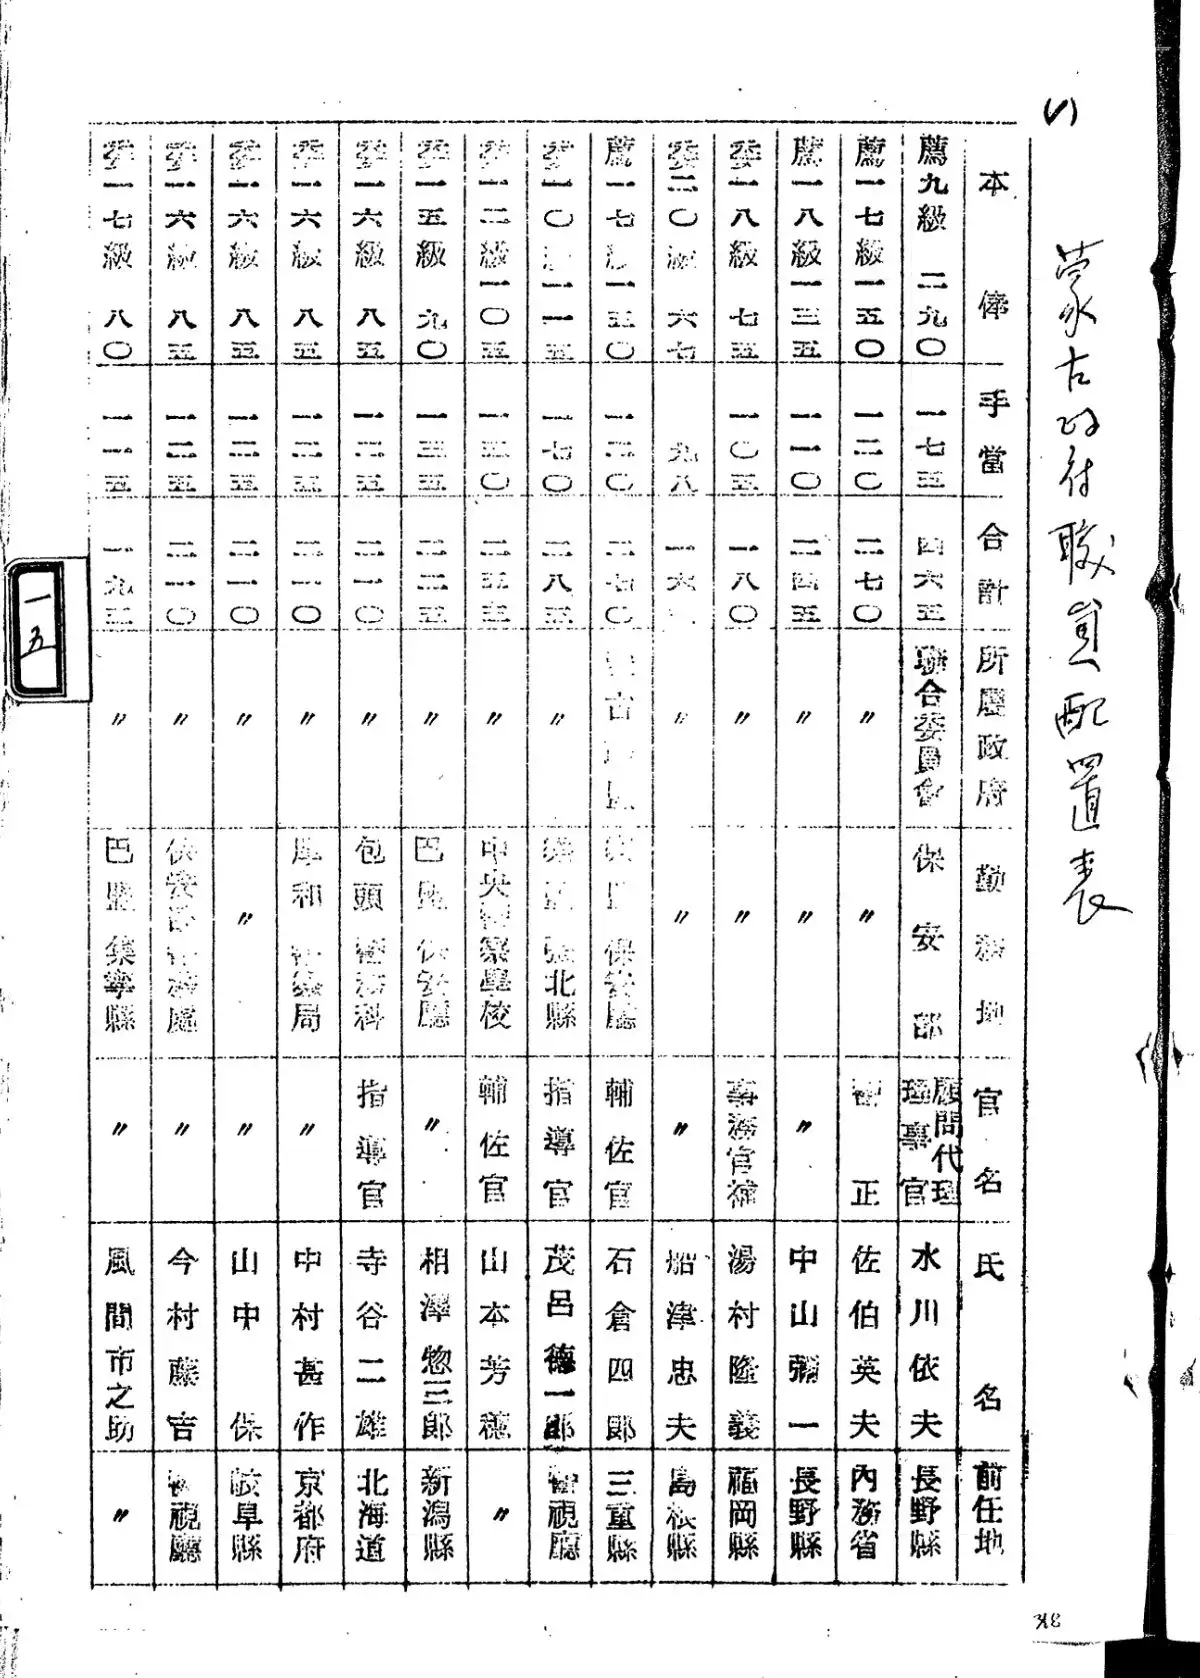 い
蒙古政府職員配置表
本俸 手當 合計 所屬政府 勤務地 官名 氏名 前任地
薦九級 二九〇 一七五 四六五 聯合委員會 保安部 顧問代理 理事官 水川依夫 長野縣
薦一七級 一五〇 一二〇 二七〇 〃 〃 正 佐伯英夫 內務省
薦一八級 一三五 一一〇 二四五 〃 〃 〃 中山彌一 長野縣
委一八級 七五 一〇五 一八〇 〃 〃 事務官補 湯村隆義 福岡縣
委二〇級 六七 九八 一六 〃 〃 〃 船津忠夫 島根縣
薦一七 一五〇 一二〇 二七〇 古 保安廳 輔佐官 石倉四郎 三重縣
委一〇 一一五 一七〇 二八五 〃 北縣 指導官 茂呂德一郎 警視廳
委一二級 一〇五 一五〇 二五五 〃 中央警察學校 輔佐官 山本芳穗 〃
委一五級 九〇 一三五 二二五 〃 巴盟保安廳 〃 相澤惣三郎 新潟縣
委一六級 八五 一二五 二一〇 〃 包頭警務科 指導官 寺谷二雄 北海道
委一六級 八五 一二五 二一〇 〃 厚和警察局 〃 中村甚作 京都府
委一六級 八五 一二五 二一〇 〃 〃 〃 山中保 岐阜縣
委一六級 八五 一二五 二一〇 〃 保安部警務處 〃 今村藤吉 警視廳
委一七級 八〇 一一五 一九五 〃 巴盟集寧縣 〃 風間市之助 〃
一五
318